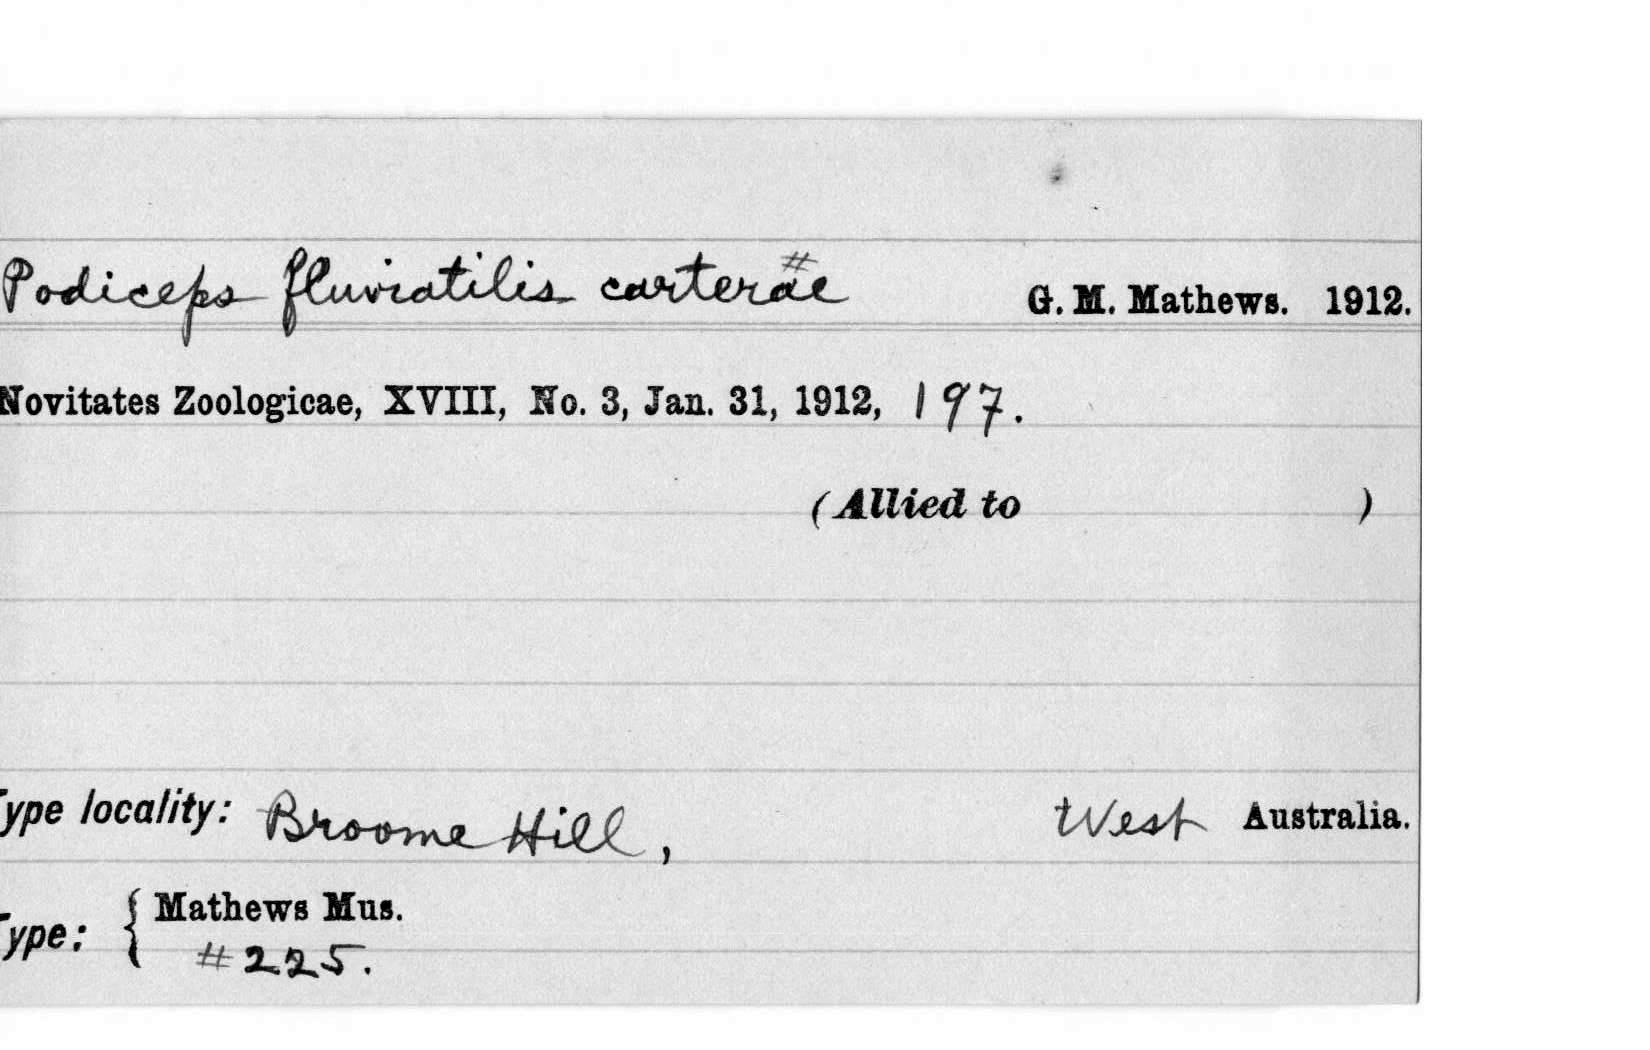 Podiceps fluviatilis carterae # G. M. Mathews. 1912.
Novitates Zoologicae, XVIII, No. 3, Jan. 31, 1912, 197.
(Allied to )
Type locality: Broome Hill, West Australia.
Type: { Mathews Mus.
#225.